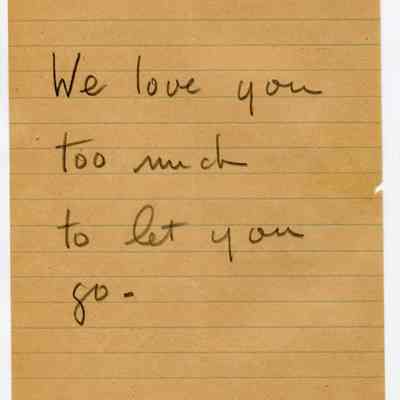 We love you
too much
to let you
go.